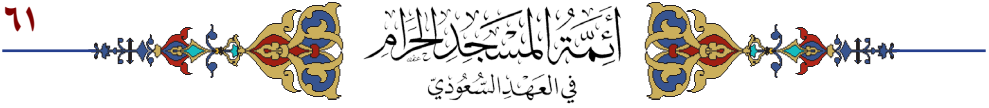 ٦١
أَئِمَّةُ المَسْجِدِ الحَرَامِ
في العَهْدِ السُّعُودِيّ